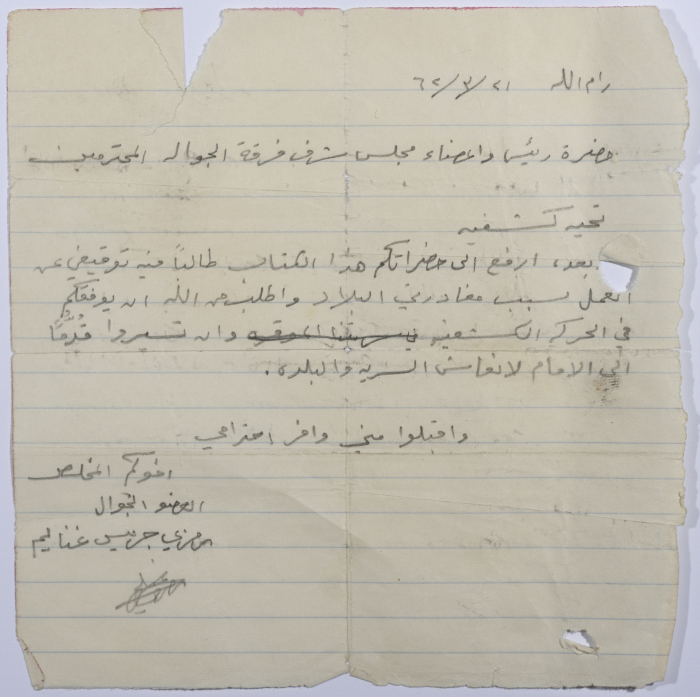 رام الله ٢١/٣/٦٢
حضرة رئيس واعضاء مجلس شرف فرقة الجواله المحترمين
تحيه كشفيه
بعد، ارفع الى حضراتكم هذا الكتاب طالباً فيه توقيفي عن
العمل بسبب مغادرتي البلاد واطلب من الله ان يوفقكم
في الحركه الكشفيه وان تسيروا قُدُماً
الى الامام لانعاش السريه والبلده .
واقبلوا مني وافر احترامي
اخوكم المخلص
العضو الجوال
رمزي جريس غنايم